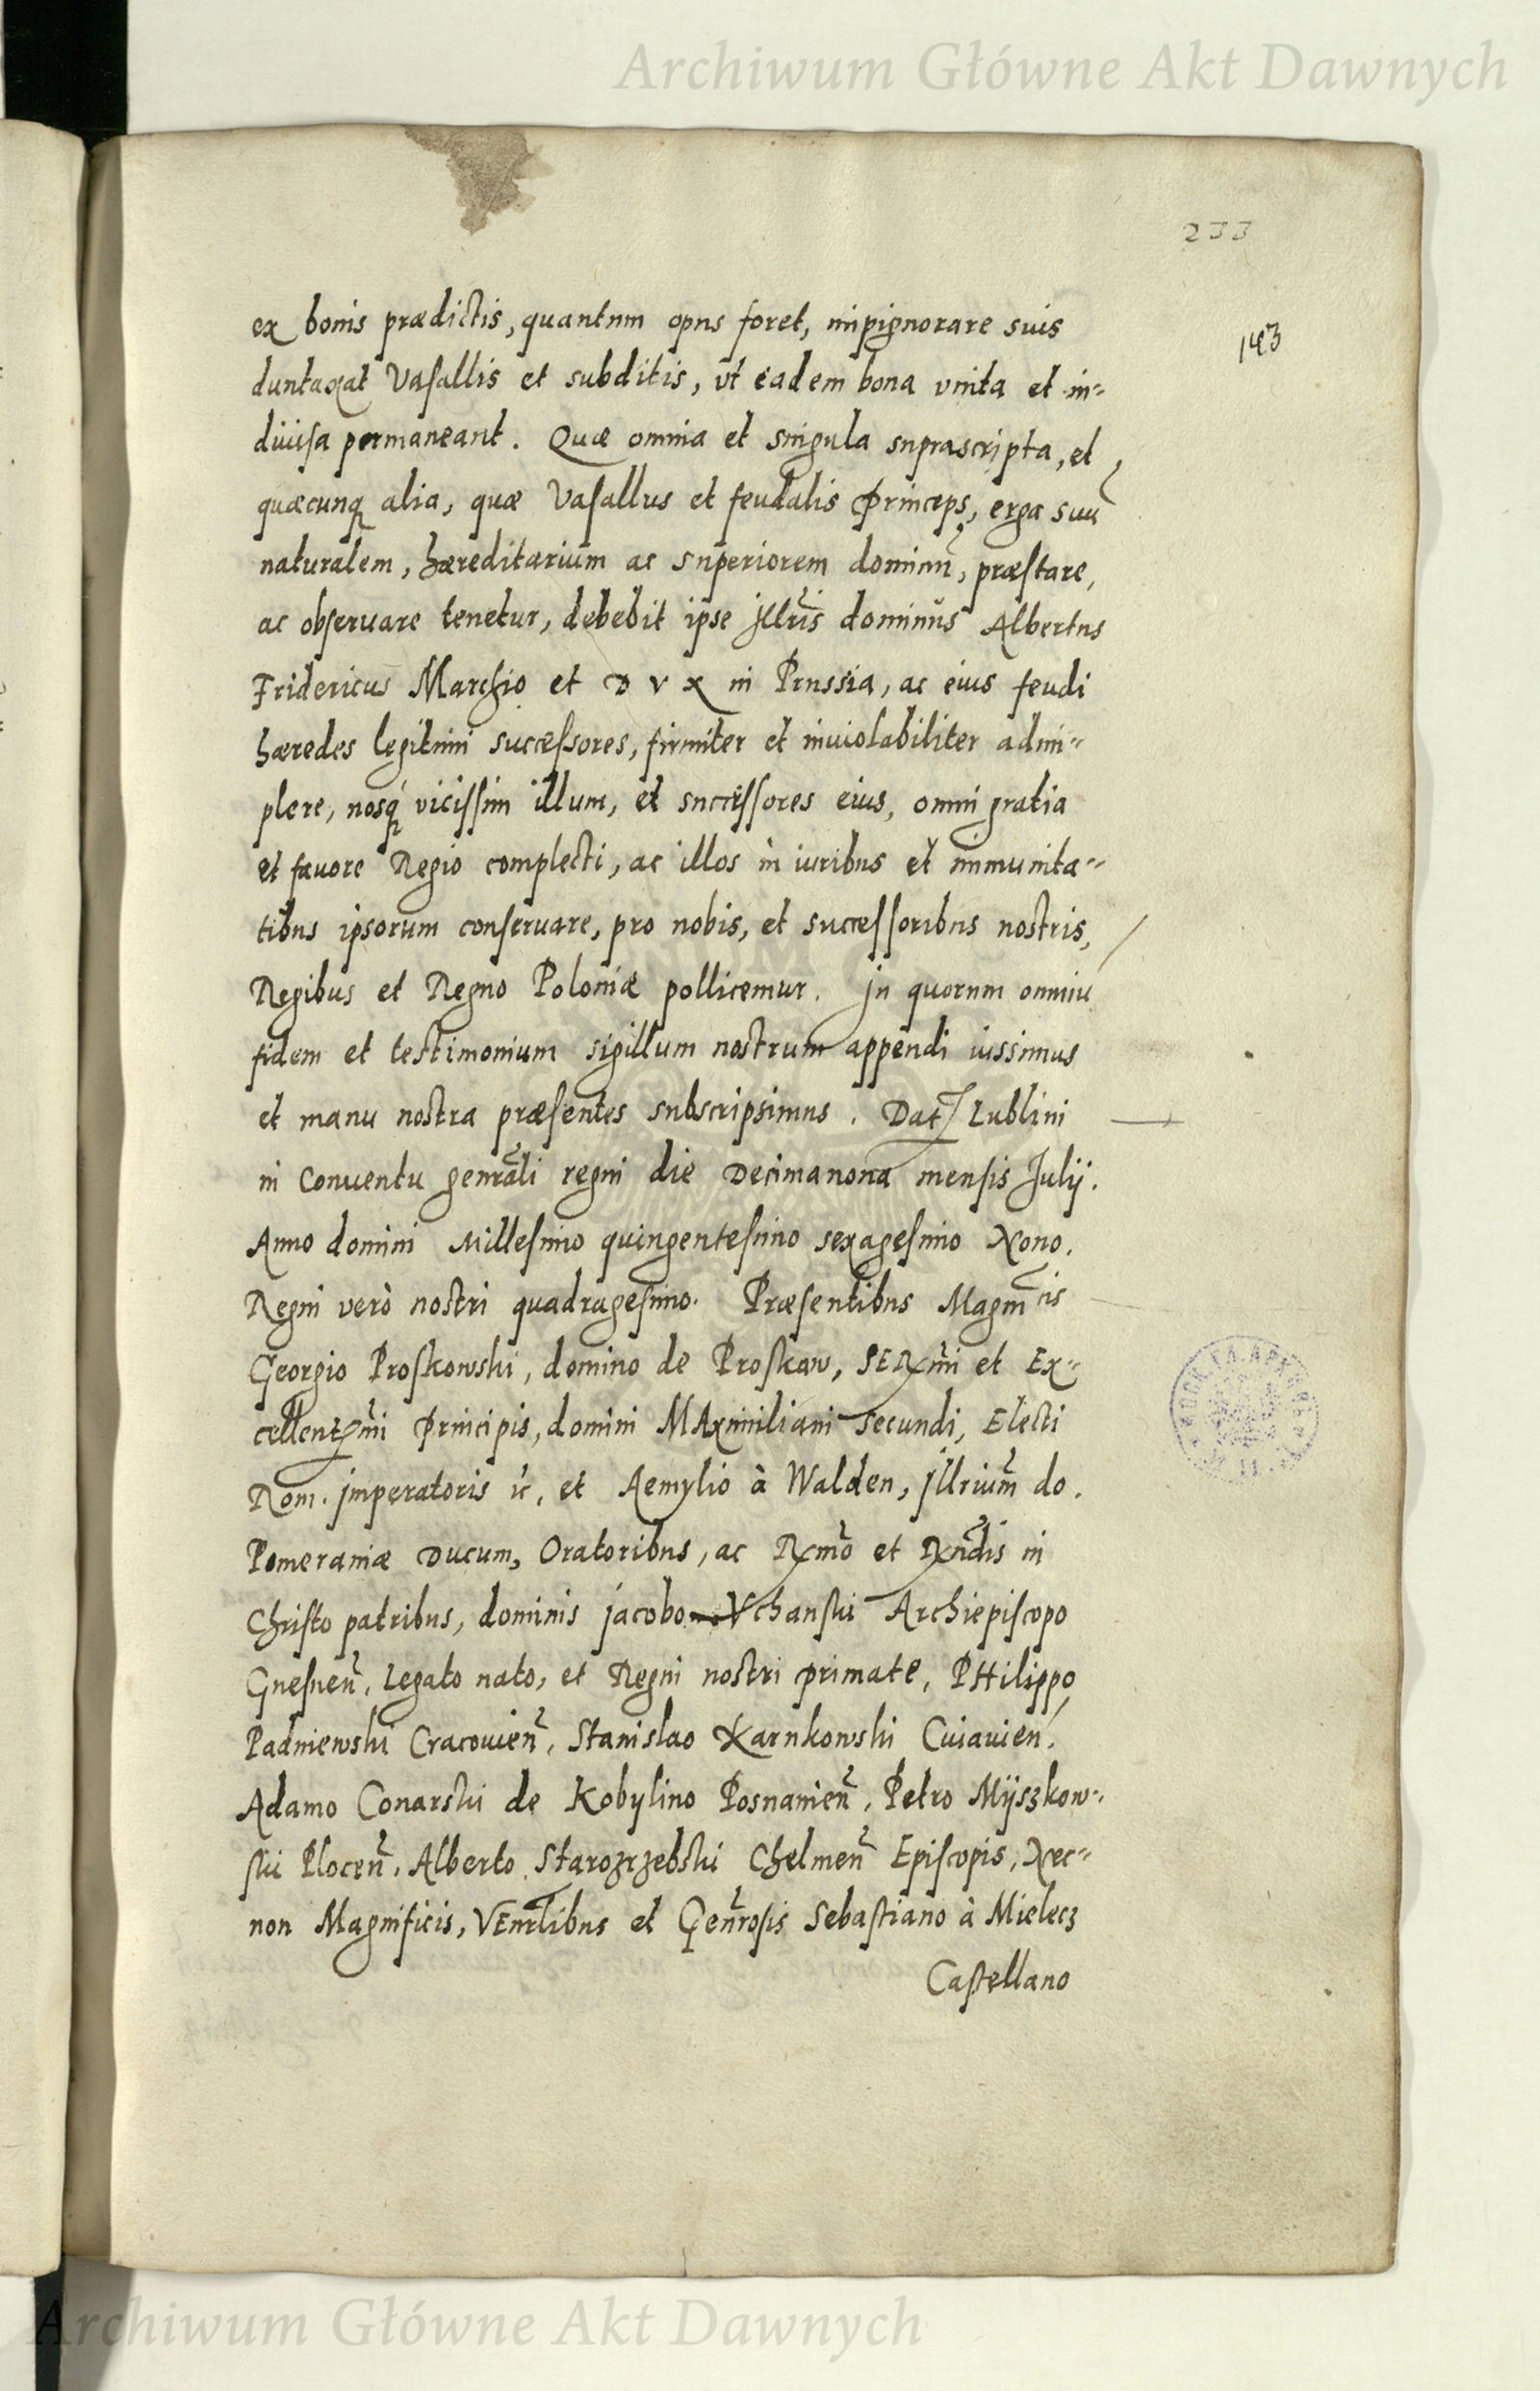 Archiwum Główne Akt Dawnych
233
143
ex bonis prædictis, quantum opus foret, impignorare suis
duntaxat Vasallis et subditis, vt eadem bona vnita et in=
diuisa permaneant. Quæ omnia et singula suprascripta, et
quæcunq alia, quæ Vasallus et feudalis Princeps, erga suū
naturalem, hæreditarium ac superiorem dominū, præstare,
ac obseruare tenetur, debebit ipse Jllris dominus Albertus
Fridericus Marchio et DVX in Prussia, ac eius feudi
hæredes legitimi successores, firmiter et inuiolabiliter adim=
plere, nosq vicissim illum, et successores eius, omni gratia
et fauore Regio complecti, ac illos in iuribus et immunita=
tibus ipsorum conseruare, pro nobis, et successoribus nostris,
Regibus et Regno Poloniæ pollicemur. Jn quorum omniū
fidem et testimonium sigillum nostrum appendi iussimus
et manu nostra præsentes subscripsimus. Dat Lublini
in Conuentu genrāli regni die Decimanona mensis Julij.
Anno domini Millesimo quingentesimo sexagesimo Nono.
Regni verò nostri quadragesimo. Præsentibus Magnicis
Georgio Proskowski, domino de Proskaw, SERmi et Ex=
cellentmi Principis, domini MAximiliani Secundi, Electi
Rom. Jmperatoris ic, et Aemylio à Walden, Jllrium do.
Pomeraniæ Ducum, Oratoribus, ac Rmo et Rndis in
Christo patribus, dominis Jacobo Vchanski Archiepiscopo
Gnesnen, Legato nato, et Regni nostri primate, PHilippo
Padniewski Cracouien, Stanislao Karnkowski Cuiauien,
Adamo Conarski de Kobylino Posnanien, Petro Mijszkow=
ski Plocen, Alberto Starozrzebski Chelmen Episcopis, Nec=
non Magnificis, VEnrlibus et Genrosis Sebastiano à Mielecz
Castellano
Archiwum Główne Akt Dawnych